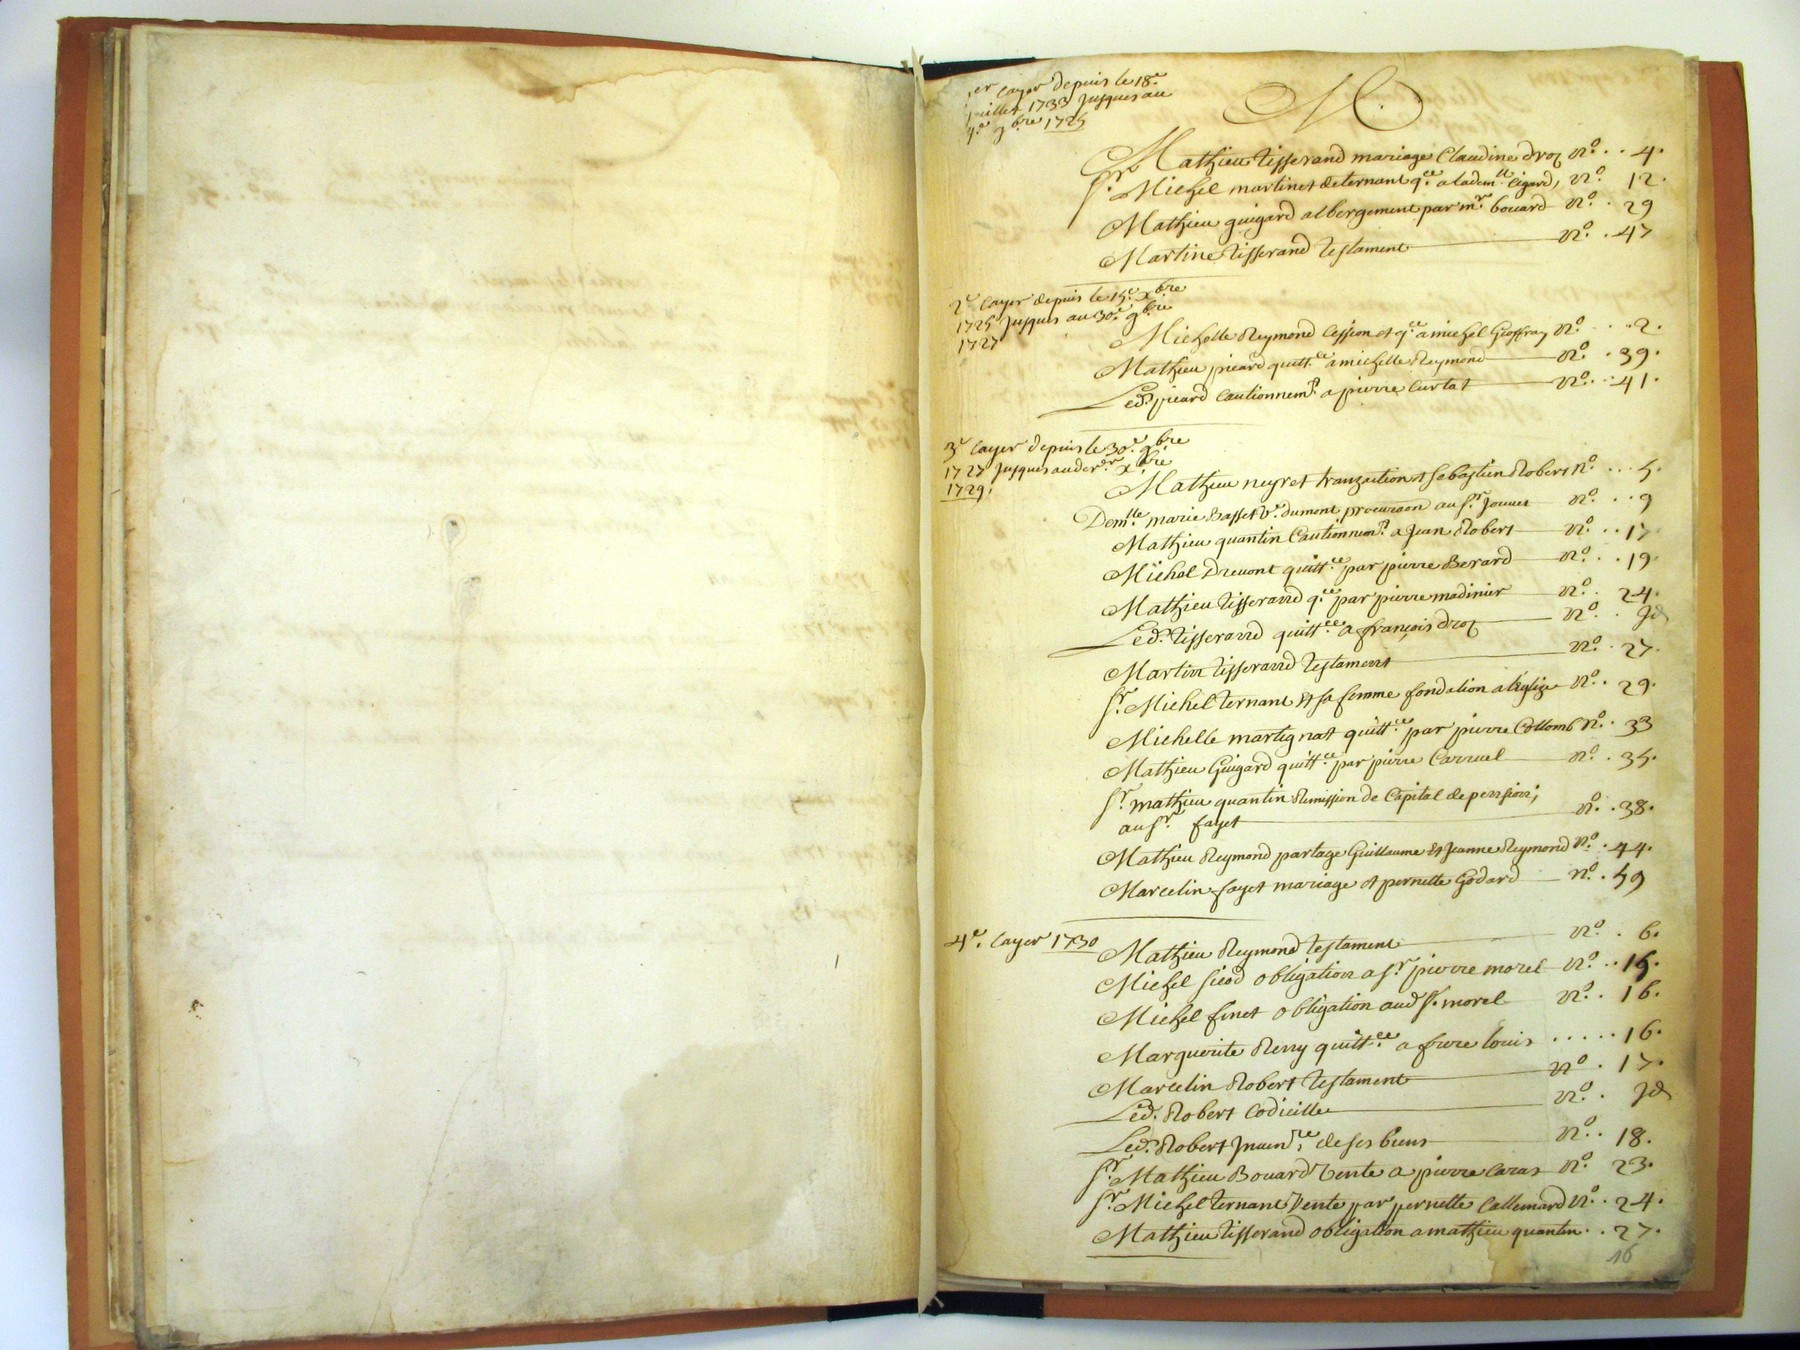 M
1er Cayer depuis le 18e
juillet 1733 jusques au
4e 9bre 1725
Mathieu Tisserand mariage Claudine Droz No. 4.
Sr. Michel martinet de ternant q.ce a la dem.lle Cigard, No. 12.
Mathieu guigard albergement par mr. bouard No. 29
Martine Tisserand Testament No. 47
2e Cayer depuis le 15e. xbre
1725 jusques au 30e. 9bre
1727
Michelle Reymond Cession et q.ce a michel Geoffray No. 2.
Mathieu picard quitt.ce a michelle Reymond No. 39.
Led. picard Cautionnem.t a pierre Curtat No. 41.
3e Cayer depuis le 30e. 9bre
1727 jusques au der.er xbre
1729.
Mathieu neyret tranzaction et Sebastien Robert No. 5.
Dem.lle marie Basset Ve. dumont procuraon au Sr. Jouuet No. 9
Mathieu quantin Cautionnem.t a Jean Robert No. 17
Michel Dreuont quitt.ce par pierre Berard No. 19.
Mathieu Tisserand q.ce par pierre madinier No. 24.
Led. Tisserand quitt.ce a françois Droz No. Jd
Martin Tisserand Testament No. 27.
Sr. Michel ternant Et sa femme fondation a leglize No. 29.
Michelle martignat quitt.ce par pierre Collomb No. 33
Mathieu Guigard quitt.ce par pierre Carruel No. 35.
Sr. mathieu quantin Remission de Capital de pension;
au Sr. fayet No. 38.
Mathieu Reymond partage Guillaume Et Jeanne Reymond No. 44.
Marcelin fayet mariage et pernette Godard No. 59
4e. Cayer 1730
Mathieu Reymond Testament No. 6.
Michel Siod obligation a Sr. pierre morel No. 15.
Michel finet obligation aud. Sr. morel No. 16.
Marguerite Remy quitt.ce a frere louis 16.
Marcelin Robert Testament No. 17.
Led. Robert Codicille No. Jd
Led. Robert Jnuen.re de ses biens No. 18.
Sr. Mathieu Bouard Vente a pierre Caras No. 23.
Sr. Michel ternant Vente par pernette Callemard No. 24.
Mathieu Tisserand obligation a mathieu quantin 27.
16